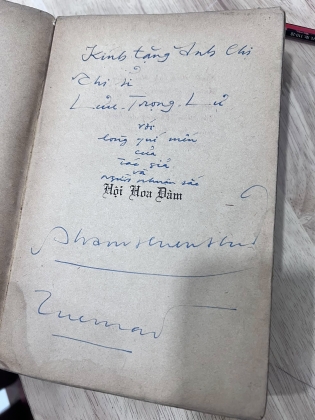 Kính tặng Anh Chị
Thi sĩ
Lưu Trọng Lư
với
lòng quí mến
của
tác giả
và
người nhuận sắc
Hội Hoa Đàm